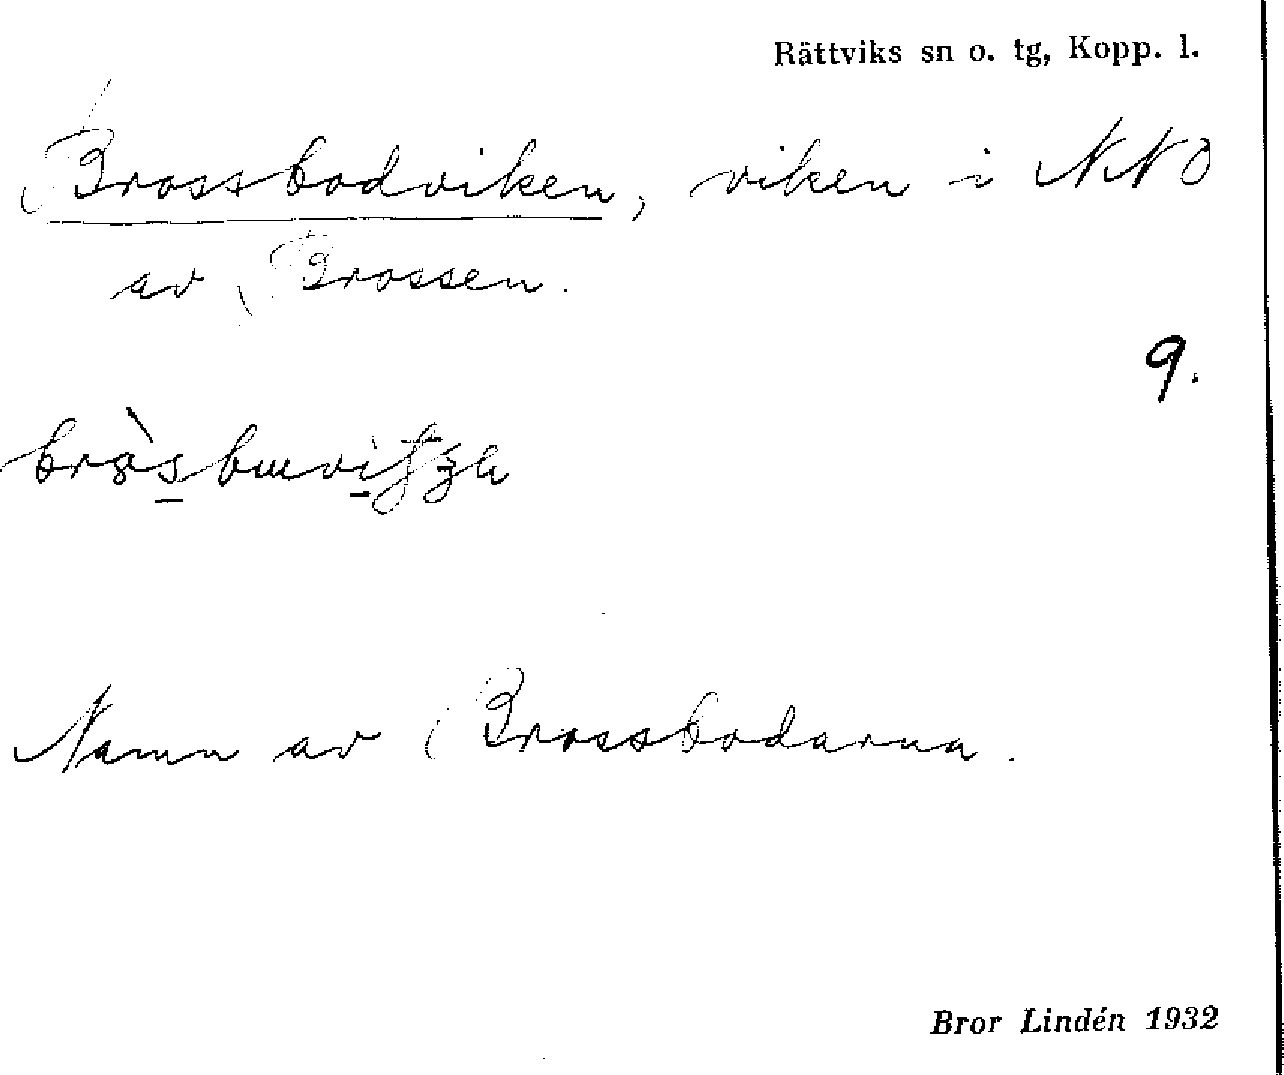 Rättviks sn o. tg, Kopp. l.
Brossbodviken, viken i NNO
av Brossen.
9.
Namn av Brossbodarna.
Bror Lindén 1932